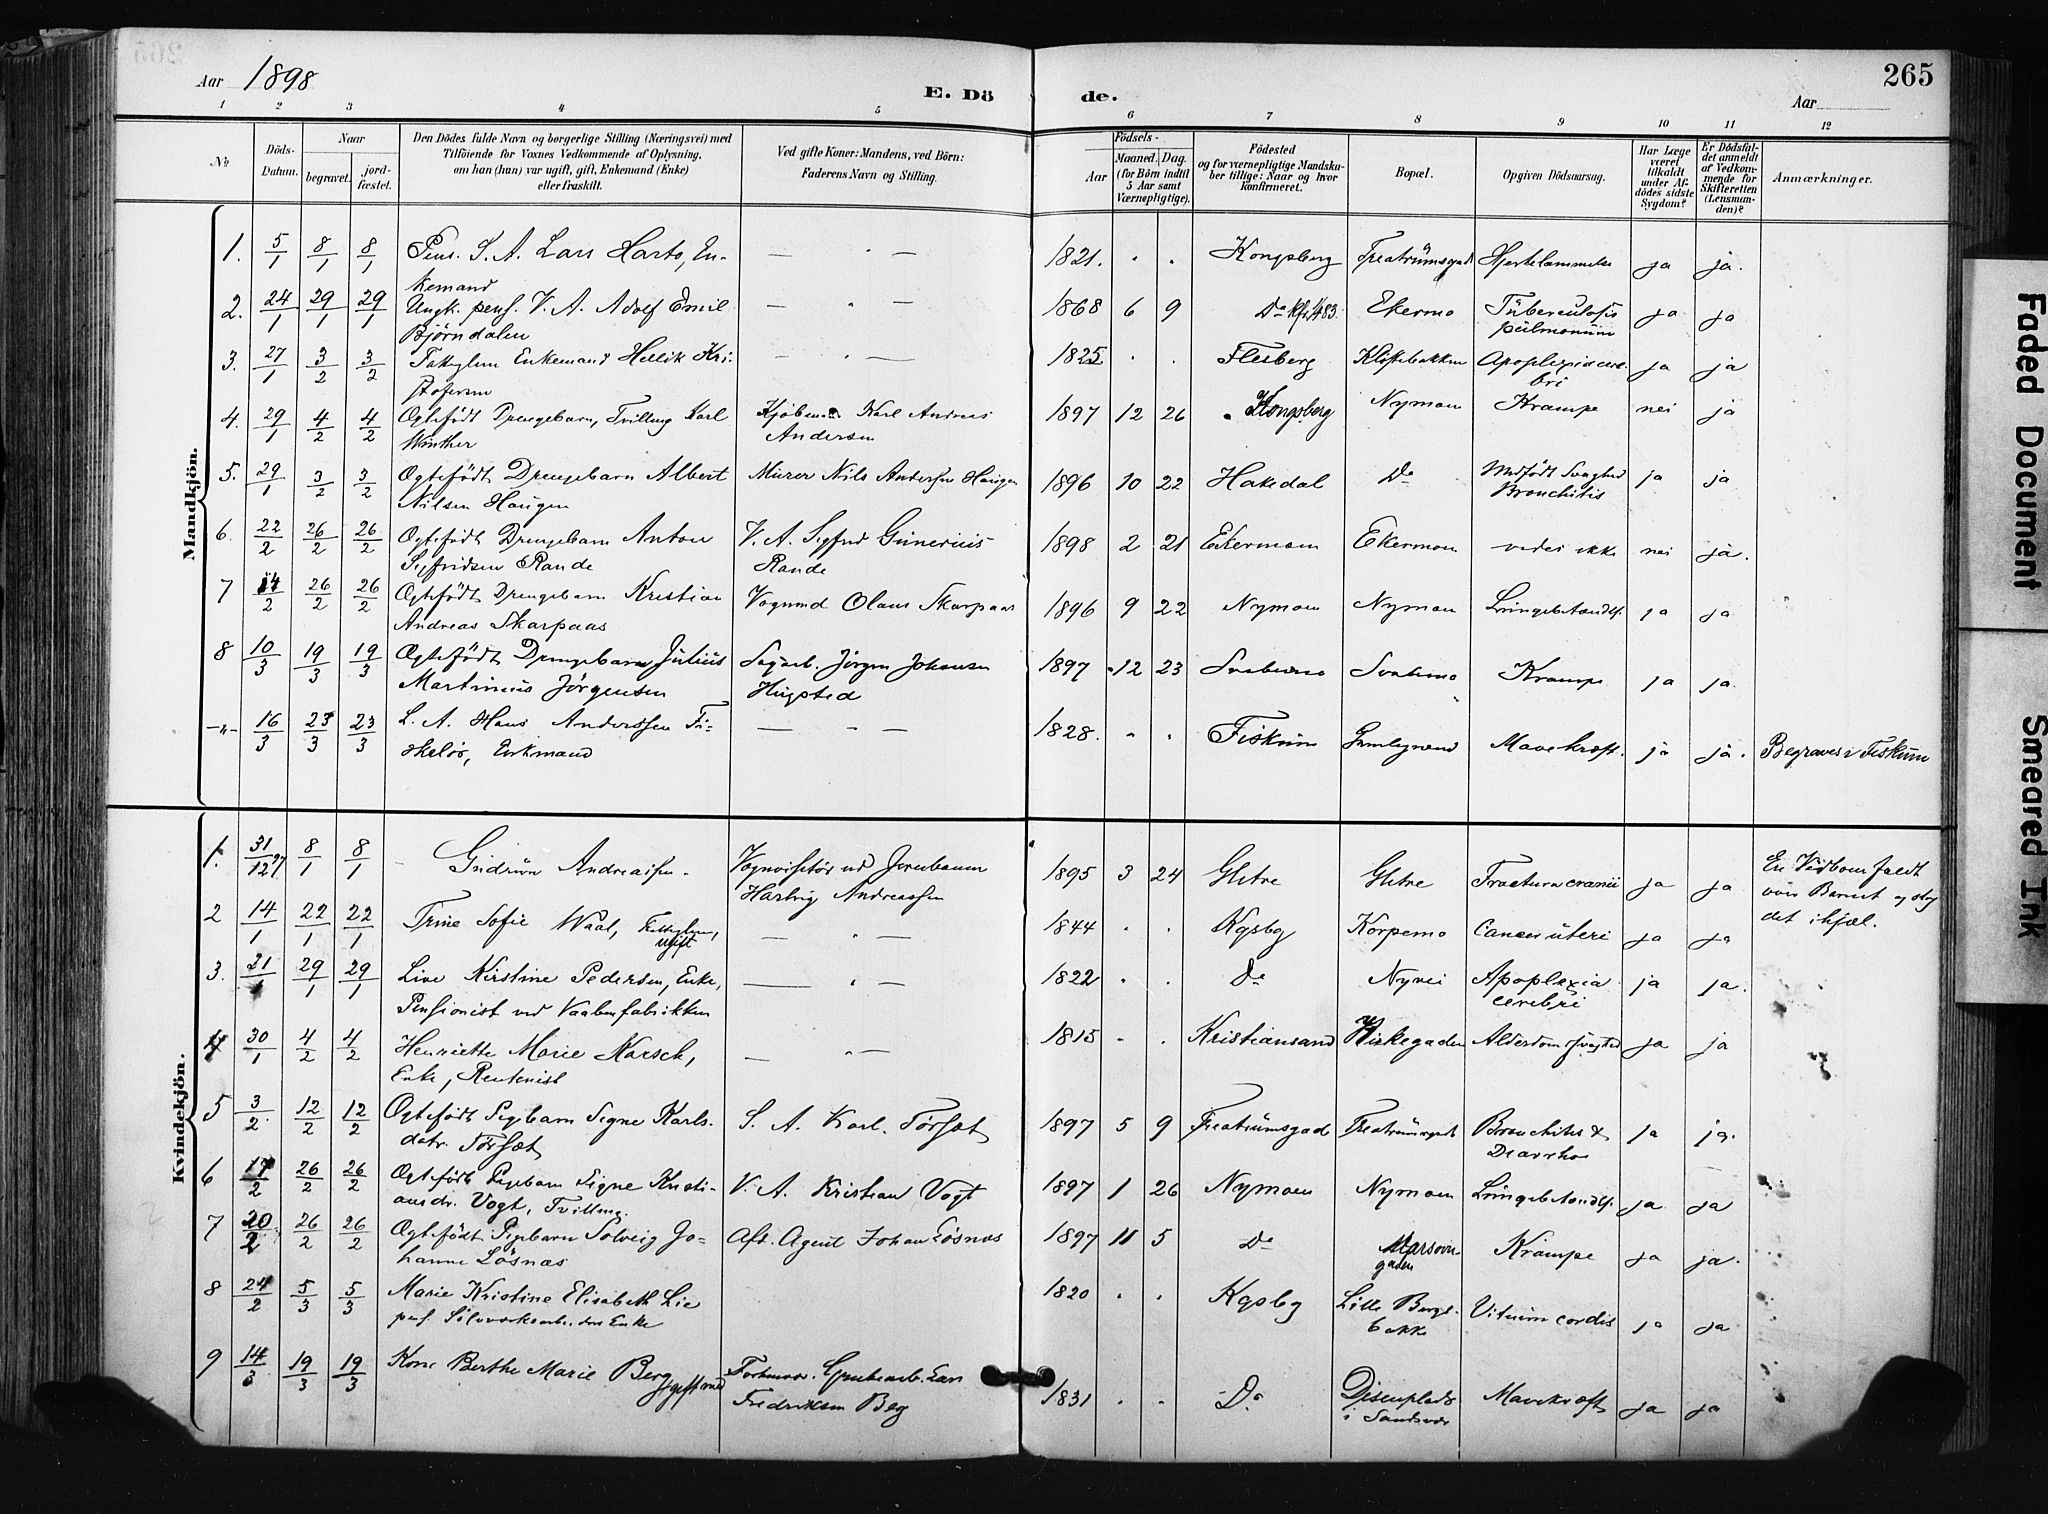 265
Aar 1898
E. Dö
de.
Aar
1 2 3 4 5 6 7 8 9 10 11 12
No
Döds-Datum.
Naar
begravet.
jord-fæstet.
Den Dödes fulde Navn og borgerlige Stilling (Næringsvei) med
Tilföiende for Voxnes Vedkommende af Oplysning,
om han (hun) var ugift, gift, Enkemand (Enke)
eller fraskilt.
Ved gifte Koner: Mandens, ved Börn:
Faderens Navn og Stilling.
Födsels-
Aar
Maaned. Dag.
(for Börn indtil
5 Aar samt
Værnepligtige).
Födested
og for værnepligtige Mandska-
ber tillige: Naar og hvor
konfirmeret.
Bopæl.
Opgiven Dödsaarsag.
Har Læge
været
tilkaldt
under Af-
dödes sidste
Sygdom?
Er Dödsfal-
det anmeldt
af Vedkom-
mende for
Skifteretten
(Lensman-
den)?
Anmærkninger.
Mandkjön.
1. 5/1 8/1 8/1 Pens. S. A. Lars Harto, En- — " — 1821. " " Kongsberg Hjertelammelse ja ja.
kemand
2. 24/1 29/1 29/1 Ungk. pens. V. A. Adolf Emil — " — 1868 6 9 Do Ekermo Tuberculosis ja ja
Björndalen pulmonum
3. 27/1 3/2 3/2 Enkemand Hellik Kri- — " — 1825 " " Flesberg Apoplexia cere- ja ja
stofersen bri
4. 29/1 4/2 4/2 Ægtefödt Drengebarn, Tvilling Karl Kjöbm. Karl Andreas 1897 12 26 Kongsberg Nymoen Krampe nei ja
Winther Andersen
5. 29/1 3/2 3/2 Ægtefödt Drengebarn Albert Murer Nils Andersen Haugen 1896 10 22 Hakedal Do Medfödt Svaghed ja ja
Nilsen Haugen Bronchitis
6. 22/2 26/2 26/2 Ægtefödt Drengebarn Anton V. A. Sigfrid Gunerius 1898 2 21 Ekermoen Ekermoen vides ikke nei ja.
Sigfridsen Rande Rande
7 14/2 26/2 26/2 Ægtefödt Drengebarn Kristian Vognmd Olaus Skarpaas 1896 9 22 Nymoen Nymoen Lungebetændelse ja ja
Andreas Skarpaas
8 10/3 19/3 19/3 Ægtefödt Drengebarn Julius Sagarb. Jörgen Johansen 1897 12 23 Krampe ja ja.
Martinius Jörgensen Hugsted
—"— 16/3 23/3 23/3 L. A. Hans Anderssen Fi- — " — 1828. " " Fiskum Gamlegrend Mavekræft. ja ja. Begraves i Fiskum
skelös, Enkmand
Kvindekjön.
1. 31/12 97 8/1 8/1 Gudrun Andreassen. Vognvisitör ved Jernbanen 1895 3 24 Glitre Glitre Fractura cranii ja ja En Vedbom faldt
Hartvig Andreassen over Barnet og slog
det ihjæl.
2 14/1 22/1 22/1 Trine Sofie Waal, Fattiglem, — " — 1844 " " Kgsbg Korpemo Cancer uteri ja ja
ugift
3. 21/1 29/1 29/1 Live Kirstine Pedersen, Enke, — " — 1822 " " Do Nyvei Apoplexia ja ja.
Pensionist ved Vaabenfabrikken cerebri
4 30/1 4/2 4/2 Henriette Marie Karsch, — " — 1815 " " Kristiansand Kirkegaden Alderdomssvaghed ja ja
Enke, Rentenist
5 3/2 12/2 12/2 Ægtefödt Pigebarn Signe Karls- S. A. Karl Törset 1897 5 9 Bronchitis & ja ja.
datr. Törset Diarrhoe
6 17/2 26/2 26/2 Ægtefödt Pigebarn Signe Kristi- V. A. Kristian Vogt 1897 1 26 Nymoen Nymoen Lungebetændelse. ja ja
ansdr. Vogt, Tvilling.
7 20/2 26/2 26/2 Ægtefödt Pigebarn Solveig Jo- Afd. Agent Johan Lösnæs 1897 11 5 Do Krampe ja ja.
hanne Lösnæs gaden
8 24/2 5/3 5/3 Marie Kristine Elisabeth Lie 1820 " " Kgsbg Lille Bergs- Vitium cordis ja ja
pens. Sölvværksarbeiders Enke bakke
9 14/3 19/3 19/3 Kone Berthe Marie Berg gift med Lars 1831 " " Do Mavekræft ja ja
Fredriksen Berg i Sandsvær
Faded Document
Smeared Ink